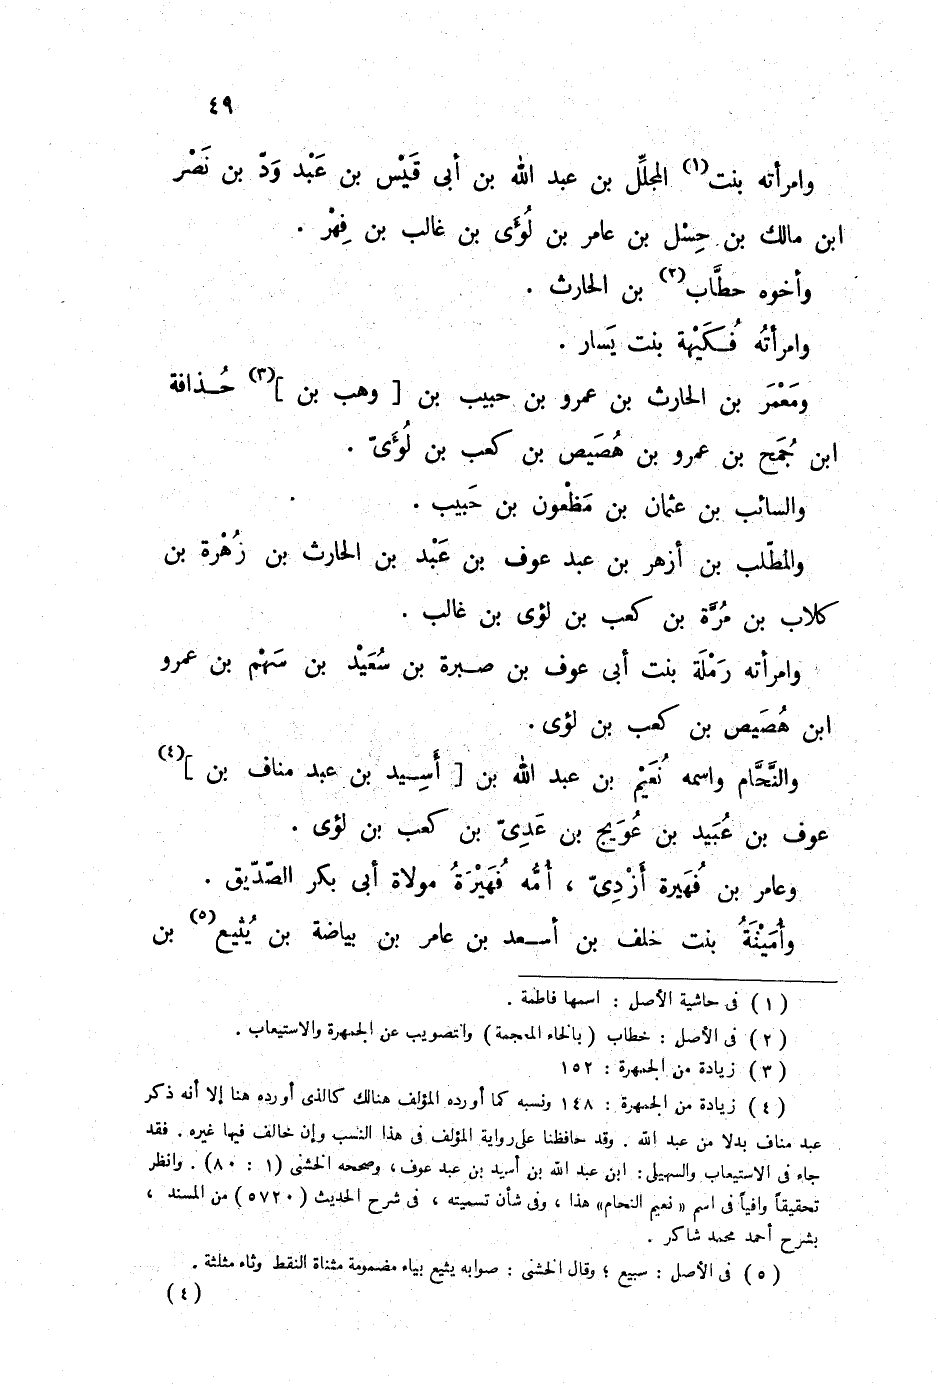 ٤٩
وامرأته بنت(١) المجلِّل بن عبد الله بن أبى قَيْس بن عَبْد وَدّ بن نَصْر
ابن مالك بن حِسْل بن عامر بن لُؤَى بن غالب بن فِهْر .
وأخوه حطَّاب(٢) بن الحارث .
وامرأتُه فُكَيْهة بنت يَسار .
ومَعْمَر بن الحارث بن عمرو بن حبيب بن [ وهب بن ](٣) حُذافة
ابن جُمَح بن عمرو بن هُصَيص بن كعب بن لُؤَىّ .
والسائب بن عثمان بن مَظْعون بن حَبيب .
والمطّلب بن أزهر بن عبد عوف بن عَبْد بن الحارث بن زُهْرة بن
كلاب بن مُرَّة بن كعب بن لؤى بن غالب .
وامرأته رَمْلَة بنت أبى عوف بن صبرة بن سُعَيْد بن سَهْم بن عمرو
ابن هُصَيص بن كعب بن لؤى .
والنَّحَّام واسمه نُعَيْم بن عبد الله بن [ أَسِيد بن عبد مناف بن ](٤)
عوف بن عُبَيد بن عُوَيج بن عَدِىّ بن كعب بن لؤى .
وعامر بن فُهَيرة أَزْدِىّ ، أُمُّه فُهَيْرَةُ مولاة أبى بكر الصّدّيق .
وأُمَيْنَةُ بنت خلف بن أسعد بن عامر بن بياضة بن يُثيع(٥) بن
(١) فى حاشية الأصل : اسمها فاطمة .
(٢) فى الأصل : خطاب (بالخاء المعجمة) والتصويب عن الجمهرة والاستيعاب .
(٣) زيادة من الجمهرة : ١٥٢
(٤) زيادة من الجمهرة : ١٤٨ ونسبه كما أورده المؤلف هنالك كالذى أورده هنا إلا أنه ذكر
عبد مناف بدلا من عبد الله . وقد حافظنا على رواية المؤلف فى هذا النسب وإن خالف فيها غيره . فقد
جاء فى الاستيعاب والسهيلى : ابن عبد الله بن أسيد بن عبد عوف ، وصححه الخشنى (١ : ٨٠) . وانظر
تحقيقاً وافياً فى اسم «نعيم النحام» هذا ، وفى شأن تسميته ، فى شرح الحديث (٥٧٢٠) من المسند ،
بشرح أحمد محمد شاكر .
(٥) فى الأصل : سبيع ؛ وقال الخشنى : صوابه يثيع بياء مضمومة مثناة النقط وثاء مثلثة .
(٤)